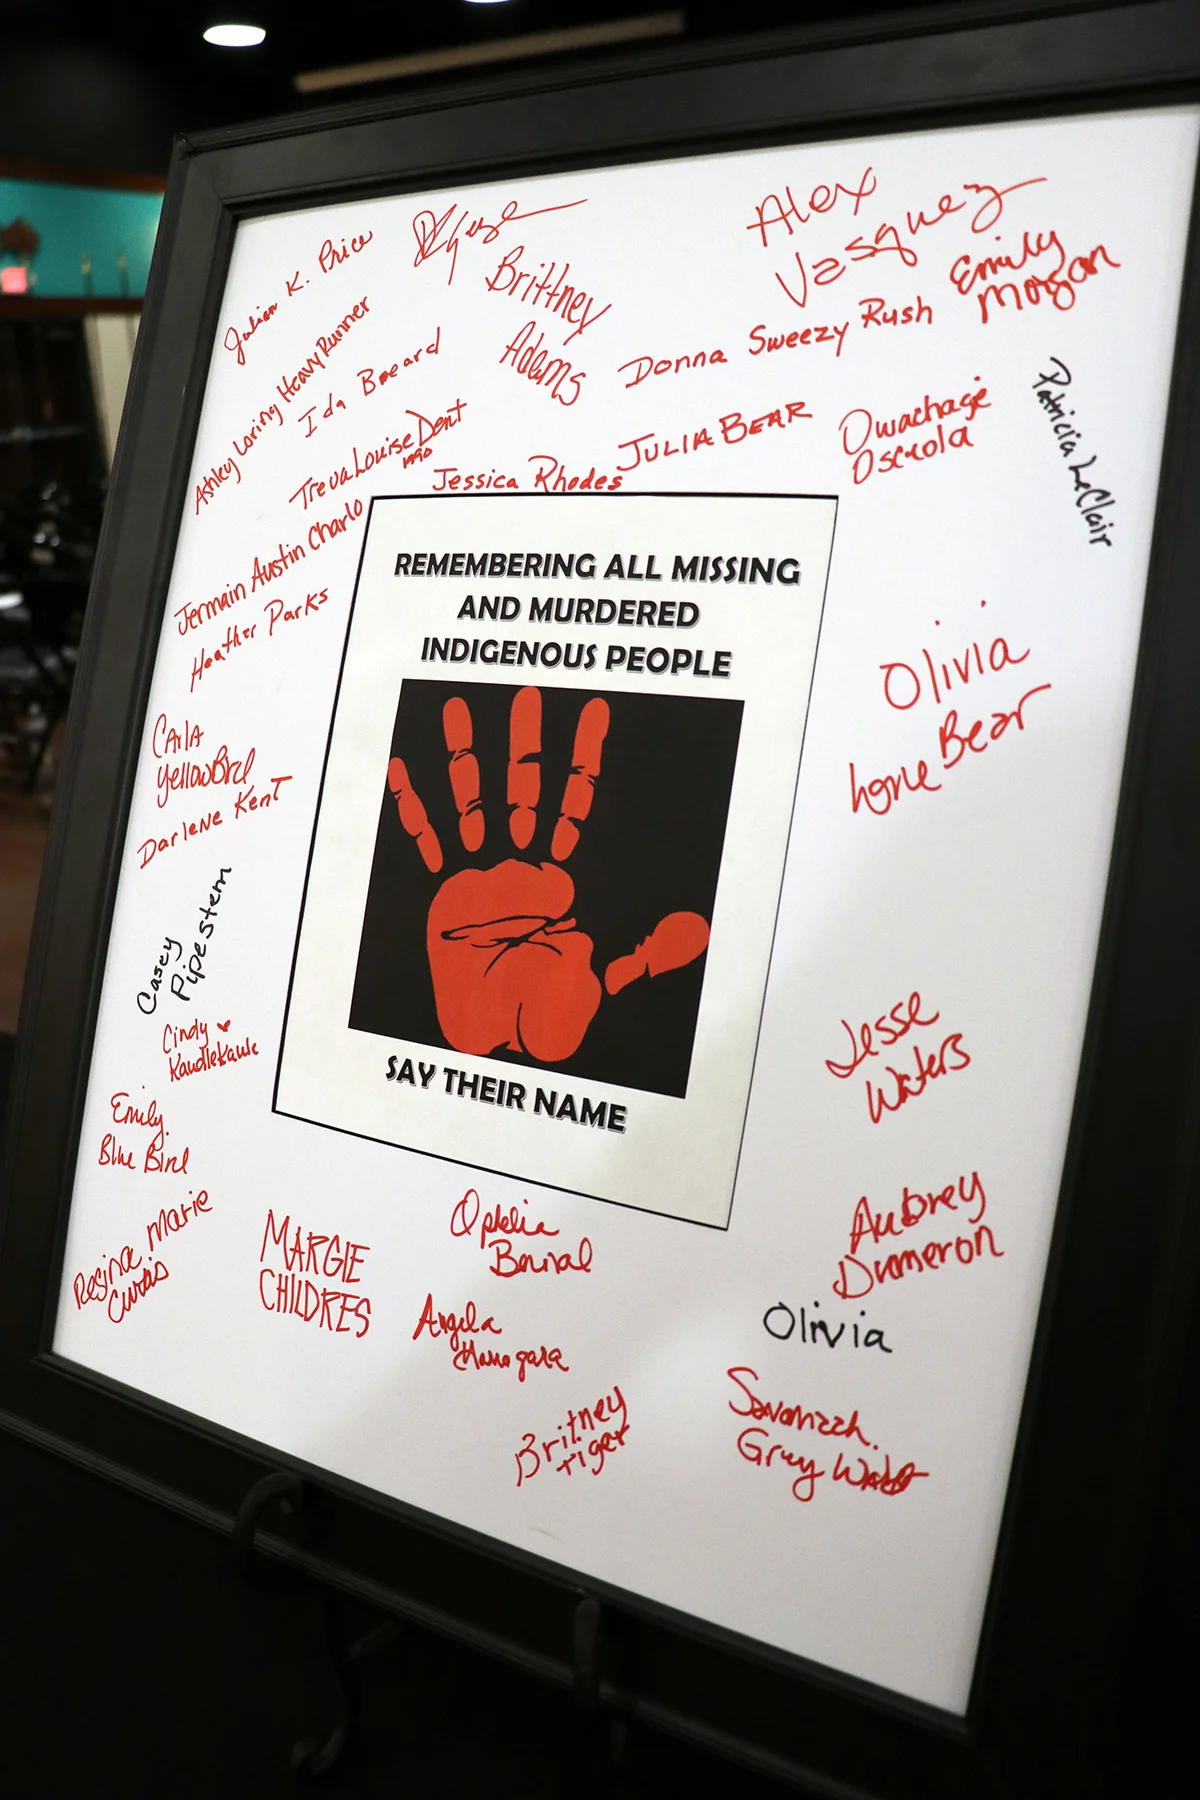 Julian K. Price
Brittney
Adams
Alex
Vasquez
Emily
Morgan
Ashley Loring HeavyRunner
Ida Beard
Donna Sweezy Rush
Treva Louise Dent
1990
Jessica Rhodes
JULIA BEAR
Owachage
Osceola
Patricia LeClair
Jermain Austin Charlo
Heather Parks
REMEMBERING ALL MISSING
AND MURDERED
INDIGENOUS PEOPLE
SAY THEIR NAME
Olivia
Lone Bear
Carla
YellowBird
Darlene Kent
Casey
Pipestem
Cindy
Emily
Blue Bird
Regina Marie
Curtis
MARGIE
CHILDRES
Ophelia
Angela
Britney
Tiger
Jesse
Waters
Aubrey
Dameron
Olivia
Savannah
Gray